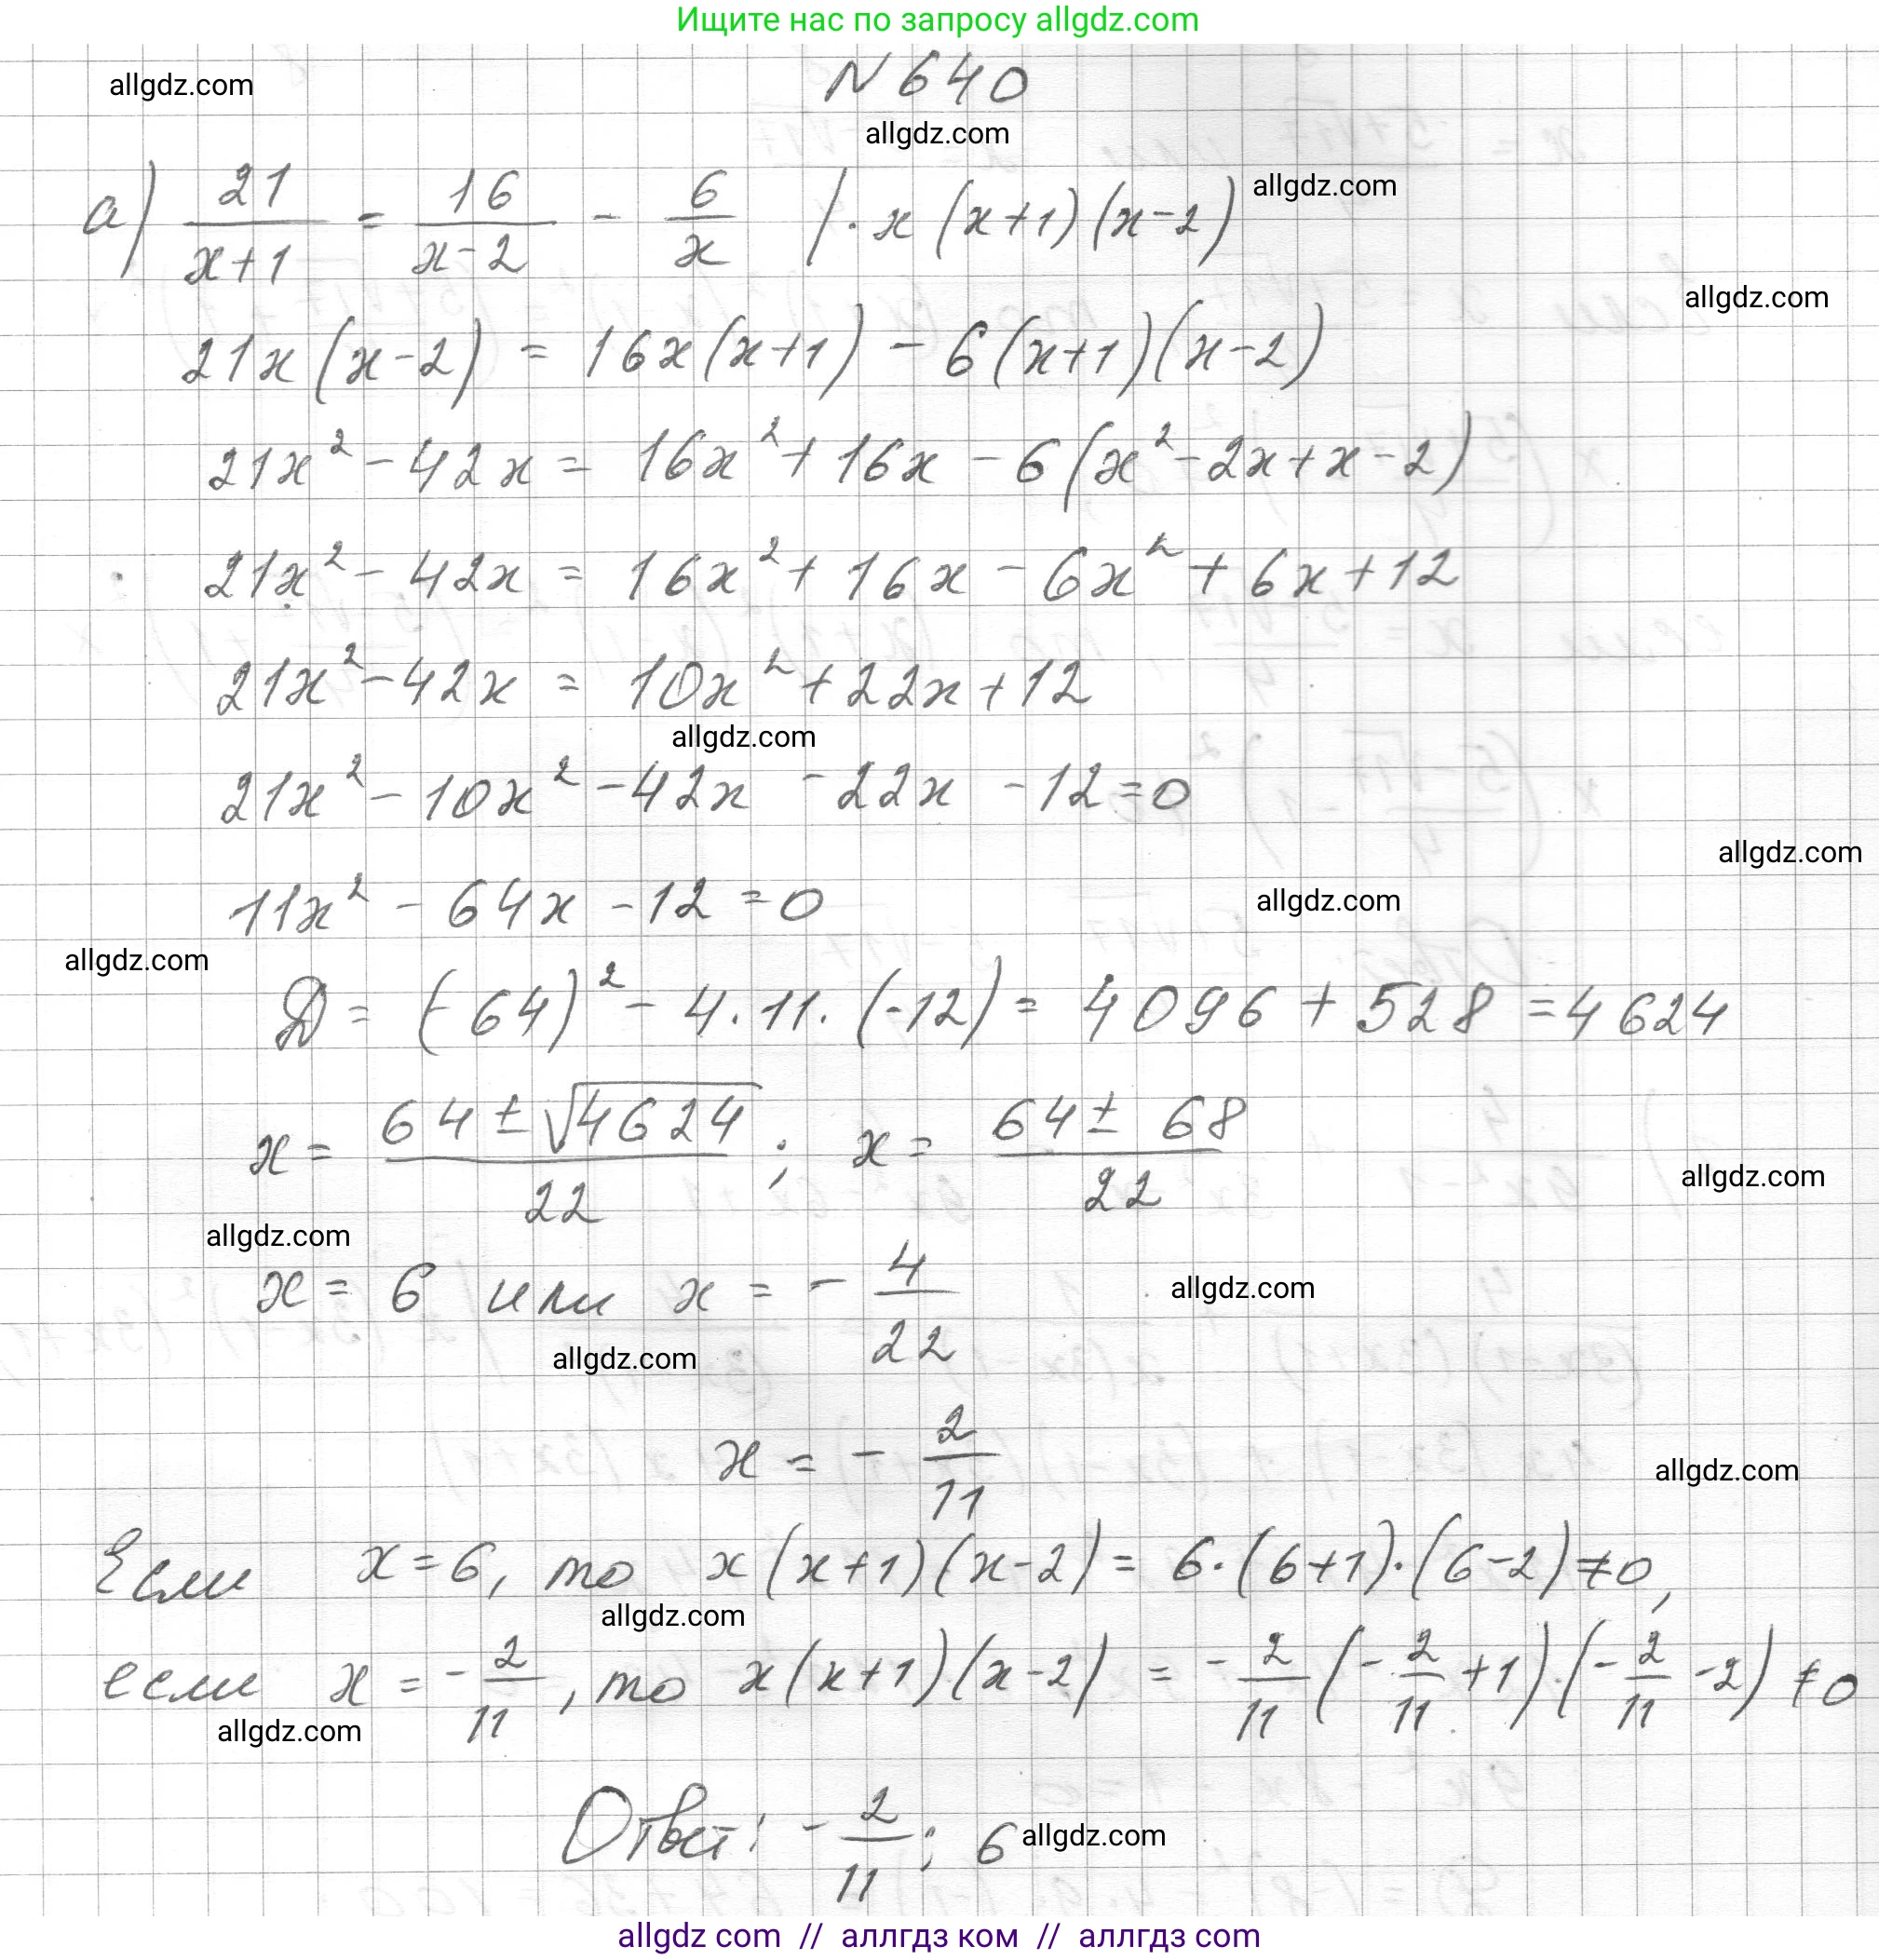 Ищите нас по запросу allgdz.com
N 640
allgdz.com
allgdz.com
а) 21/(x+1) = 16/(x-2) - 6/x | · x(x+1)(x-2)
allgdz.com
allgdz.com
21x(x-2) = 16x(x+1) - 6(x+1)(x-2)
21x² - 42x = 16x² + 16x - 6(x² - 2x + x - 2)
21x² - 42x = 16x² + 16x - 6x² + 6x + 12
21x² - 42x = 10x² + 22x + 12
allgdz.com
21x² - 10x² - 42x - 22x - 12 = 0
allgdz.com
11x² - 64x - 12 = 0
allgdz.com
allgdz.com
D = (-64)² - 4·11·(-12) = 4096 + 528 = 4624
x = (64 ± √4624)/22 ; x = (64 ± 68)/22
allgdz.com
allgdz.com
x = 6 или x = - 4/22
allgdz.com
allgdz.com
x = - 2/11
allgdz.com
Если x = 6, то x(x+1)(x-2) = 6·(6+1)·(6-2) ≠ 0,
allgdz.com
если x = - 2/11, то x(x+1)(x-2) = - 2/11 (- 2/11 + 1)·(- 2/11 - 2) ≠ 0
allgdz.com
Ответ: - 2/11; 6
allgdz.com
allgdz com // аллгдз ком // аллгдз com